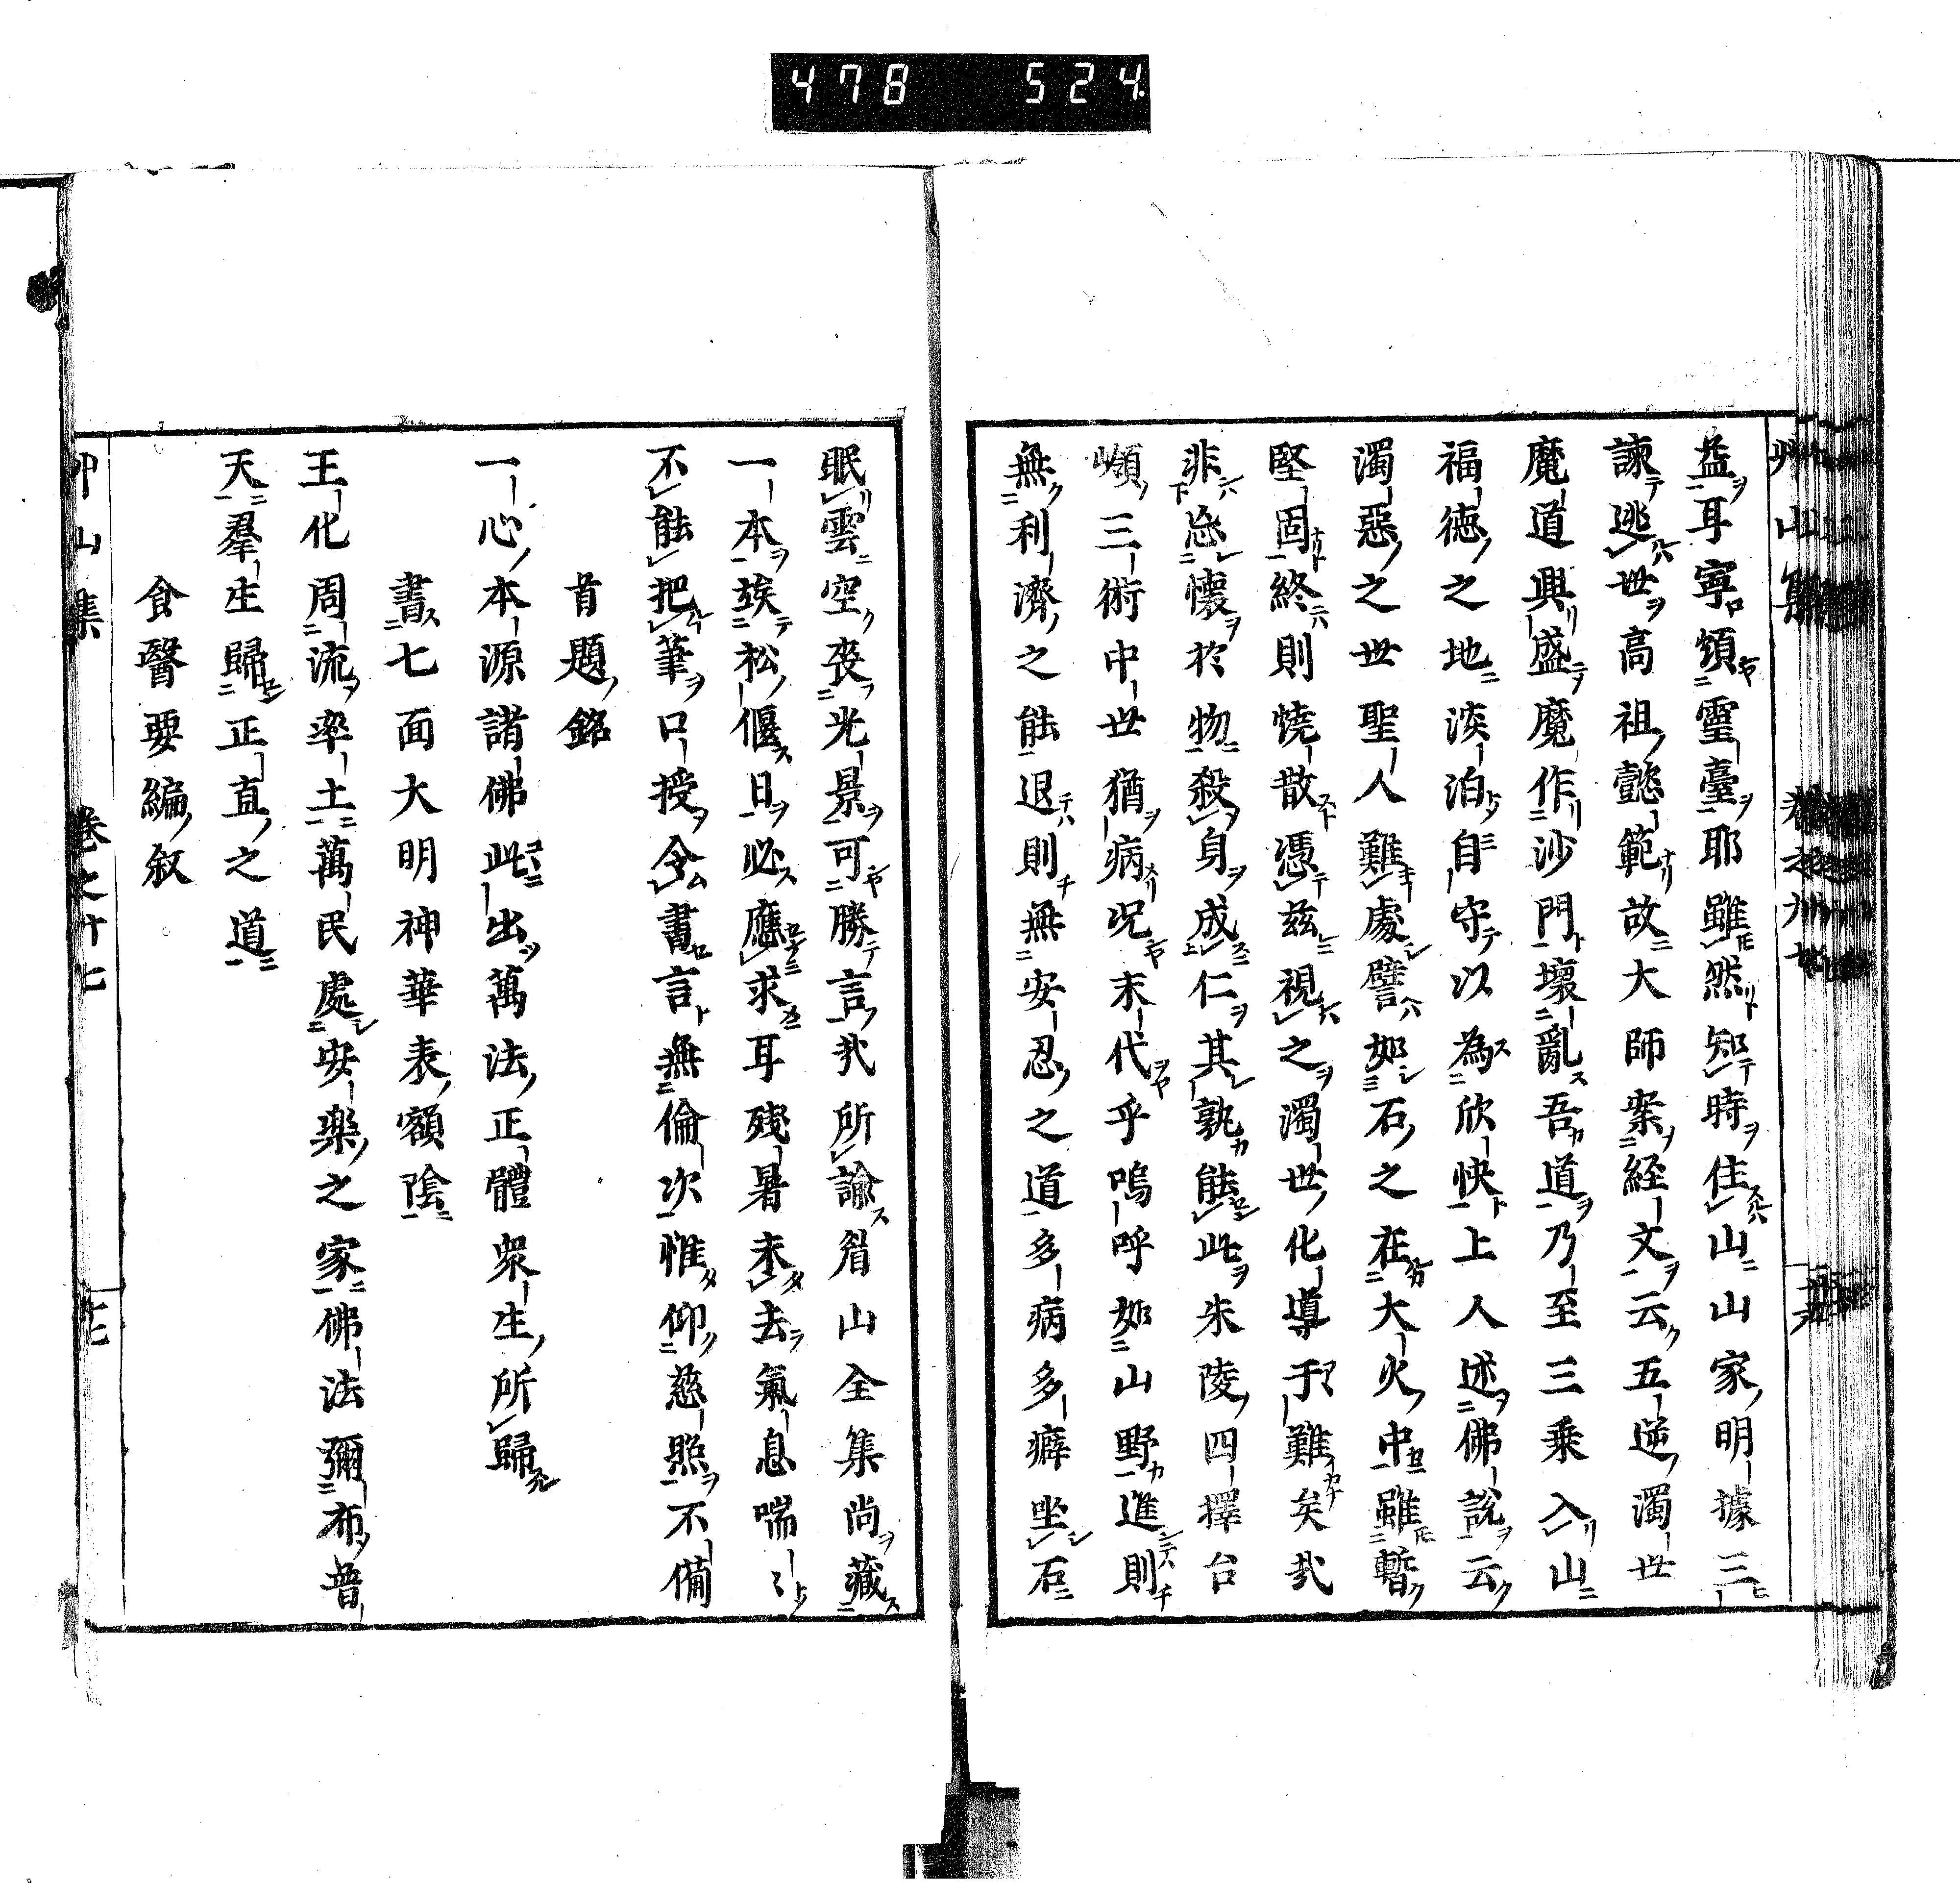 478 524
益耳寧煩靈臺耶雖然知時住山山家明據三
諫逃世高祖懿範故大師案経文云五逆濁世
魔道興盛魔作沙門壞亂吾道乃至三乗入山
福徳之地淡泊自守以為欣快上人述佛説云
濁惡之世聖人難處譬如石之在大火中雖暫
堅固終則焼散憑茲視之濁世化導于難矣哉
非忘懐於物殺身成仁其孰能此朱陵四擇台
嶺三術中世猶病况末代乎嗚呼如山野進則
無利濟之能退則無安忍之道多病多癖坐石
眠雲空喪光景可勝言哉所諭省山全集尚藏
一本埃松偃日必應求耳殘暑未去氣息喘〻
不能把筆口授令書言無倫次惟仰慈照不備
首題銘
一心本源諸佛此出萬法正體衆生所歸
書七面大明神華表額陰
王化周流率土萬民處安樂之家佛法彌布普
天羣生歸正直之道
食醫要編叙
艸山集 卷之廿七 廿七